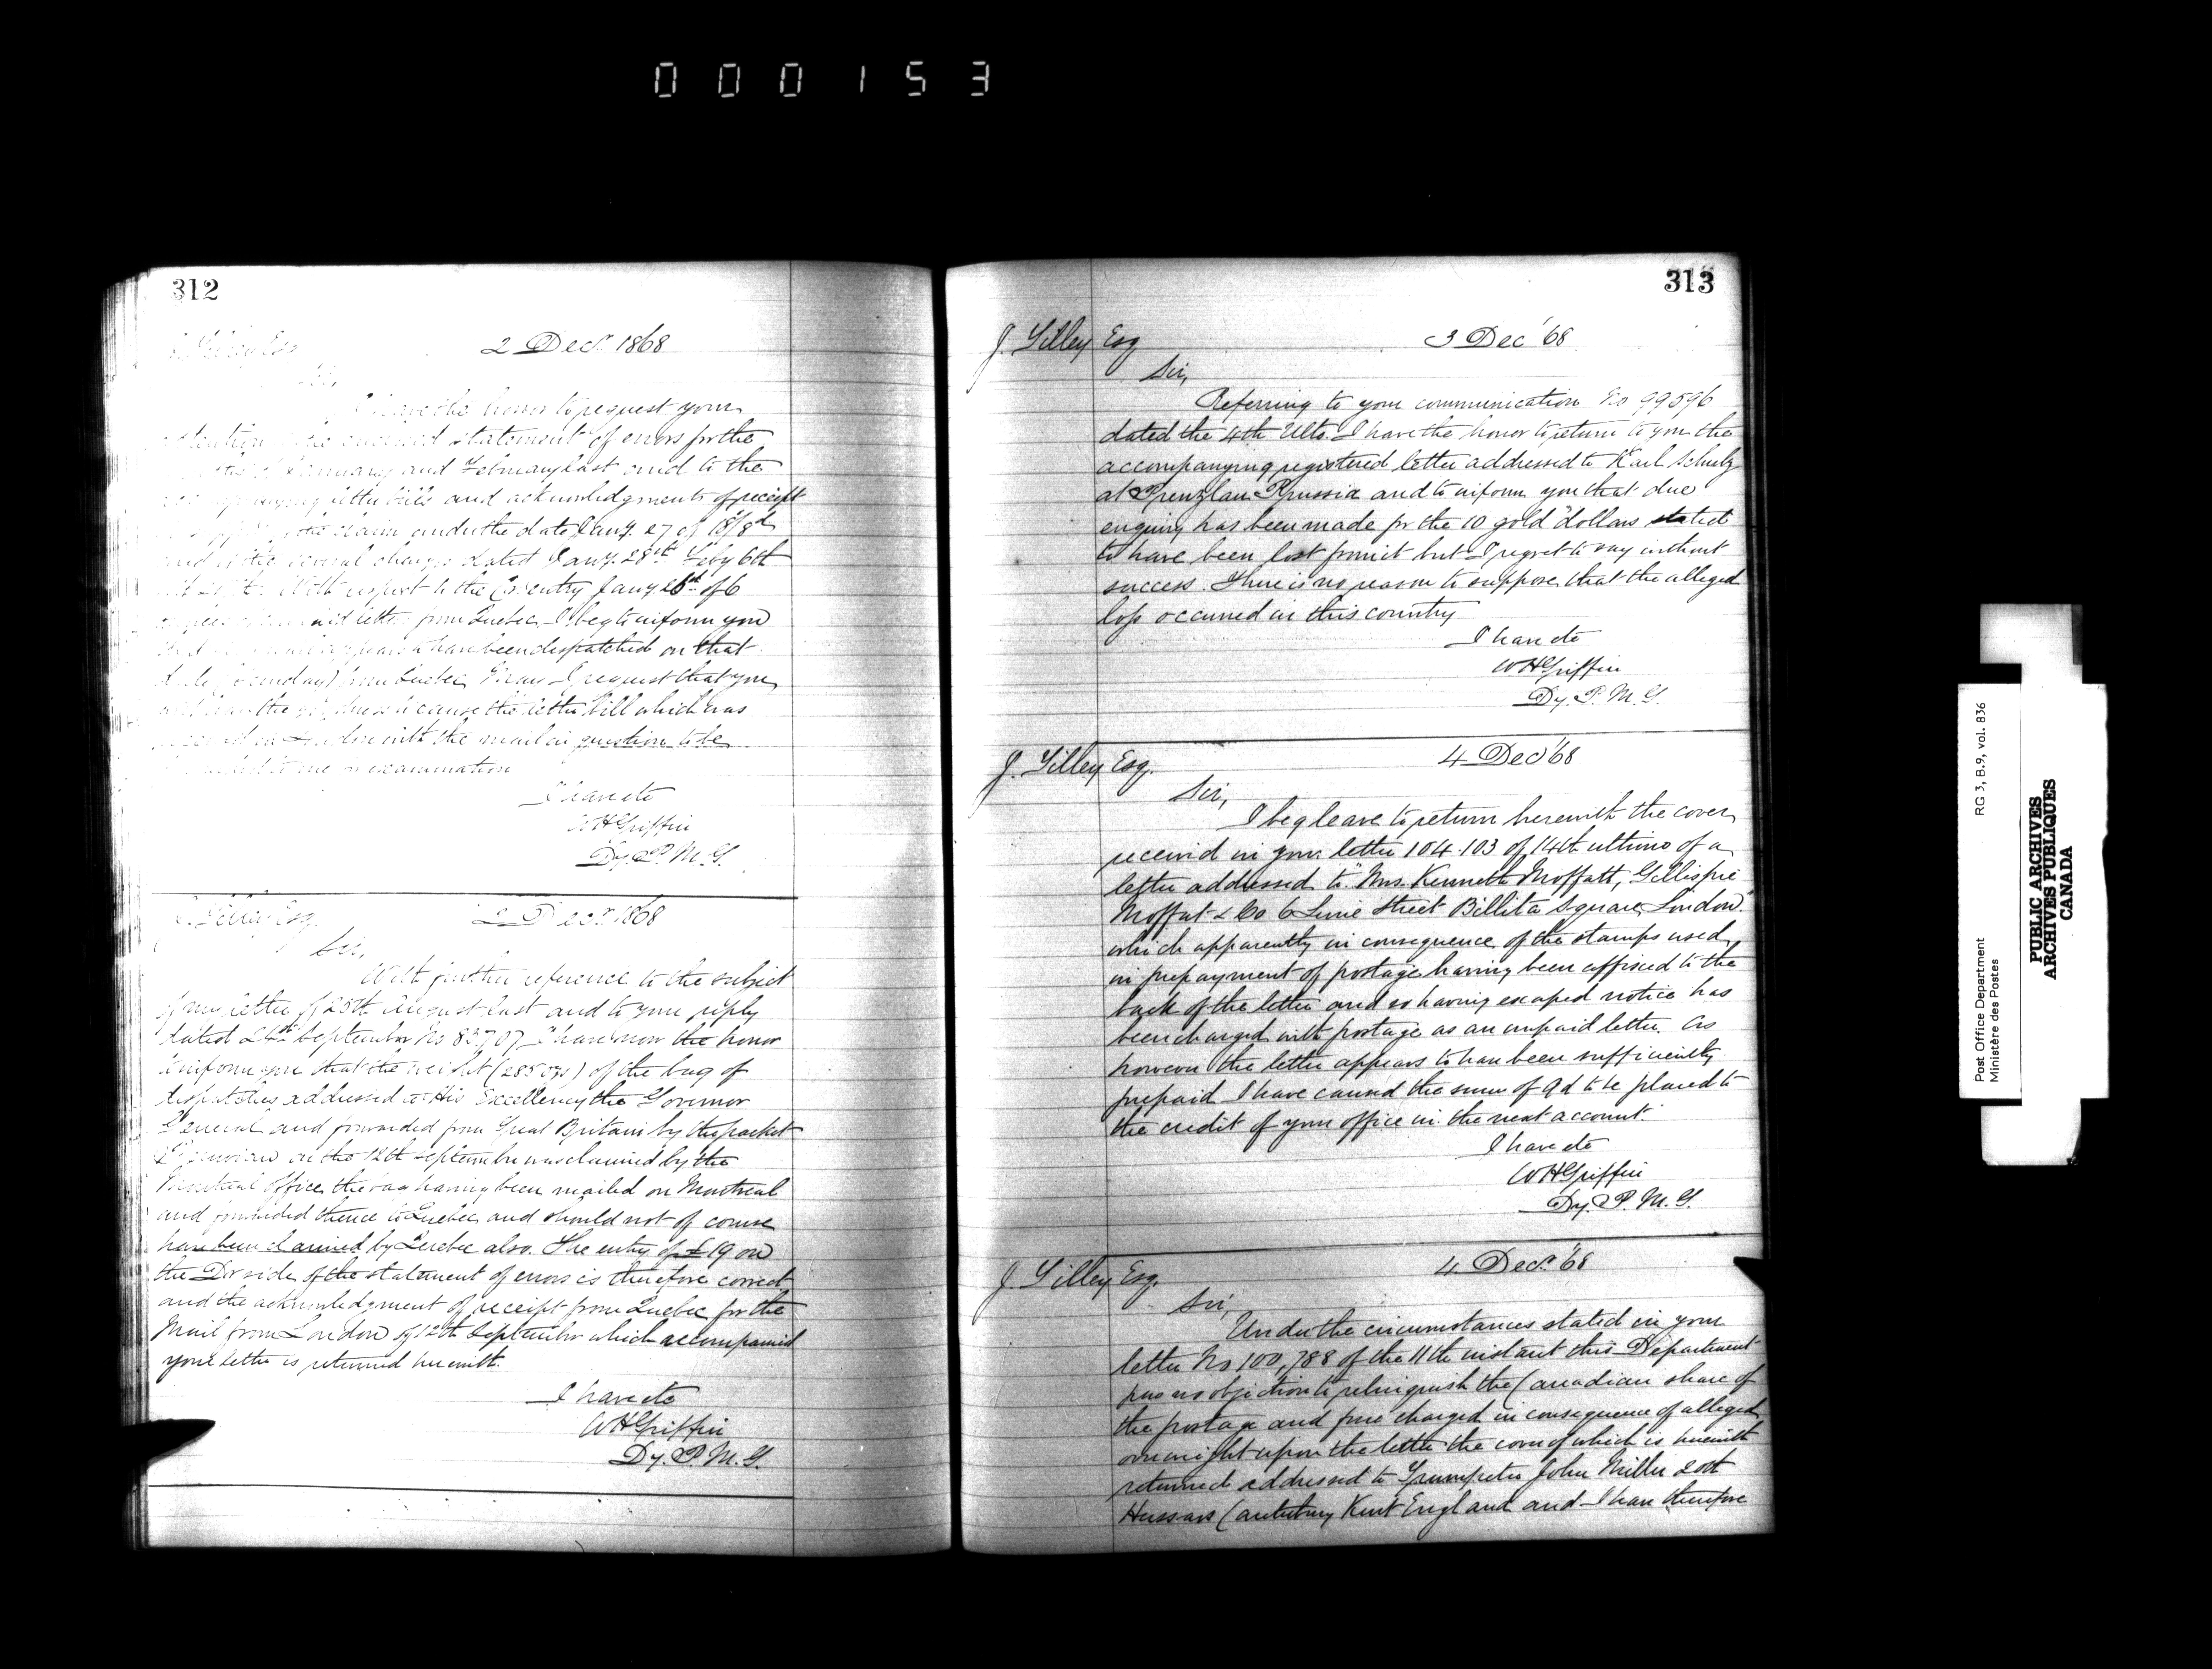 000153
312
2 Dec.r 1868
have the honor to request your
statement of errors for the
January and February last and to the
letter bills and acknowledgments of receipt
claim under the date Jany. 27 of 18/8d
several charges dated Jany. 28th Feby 6th
With respect to the Cr. entry Jany 26th of 6
letter from Quebec I beg to inform you
have been despatched on that
(Sunday) from Quebec I request that you
the goodness to cause the letter bill which was
in London with the mail in question to be
to me for examination
I have etc
WHGriffin
Dy. P. M. G.
J. Tilley Esq. 2 Dec.r 1868
Sir,
With further reference to the subject
of my letter of 25th August last and to your reply
dated 24th September No 83707 I have now the honor
to inform you that the weight (285 ozs) of the bag of
despatches addressed to His Excellency the Governor
General and forwarded from Great Britain by the packet
Peruvian on the 12th September was claimed by the
Montreal office the bag having been mailed on Montreal
and forwarded thence to Quebec and should not of course
have been claimed by Quebec also. The entry of £19 on
the Dr side of the statement of errors is therefore correct
and the acknowledgment of receipt from Quebec for the
Mail from London of 12th September which accompanied
your letter is returned herewith.
I have etc
WHGriffin
Dy. P. M. G.
313
J. Tilley Esq 3 Dec '68
Sir,
Referring to your communication No 99596
dated the 4th Ulto. I have the honor to return to you the
accompanying registered letter addressed to Karl Schulz
at Prenzlau Prussia and to inform you that due
enquiry has been made for the 10 gold dollars stated
to have been lost from it but I regret to say without
success. There is no reason to suppose that the alleged
loss occurred in this country
I have etc
WHGriffin
Dy. P. M. G.
J. Tilley Esq. 4 Dec '68
Sir,
I beg leave to return herewith the cover
received in your letter 104.103 of 14th ultimo of a
letter addressed to "Mrs. Kenneth Moffatt, Gillispie
Moffat & Co 6 Lime Street Billita Square London"
which apparently in consequence of the stamps used
in prepayment of postage having been affixed to the
back of the letter and so having escaped notice has
been charged with postage as an unpaid letter. As
however the letter appears to have been sufficiently
prepaid I have caused the sum of 9d to be placed to
the credit of your office in the next account.
I have etc
WHGriffin
Dy. P. M. G.
J. Tilley Esq. 4 Dec.r '68
Sir,
Under the circumstances stated in your
letter No 100,788 of the 11th instant this Department
has no objection to relinquish the Canadian share of
the postage and fine charged in consequence of alleged
overweight upon the letter the cover of which is herewith
returned addressed to Trumpeter John Miller 20th
Hussars Canterbury Kent England and I have therefore
Post Office Department RG 3, B.9, vol. 836
Ministère des Postes
PUBLIC ARCHIVES
ARCHIVES PUBLIQUES
CANADA